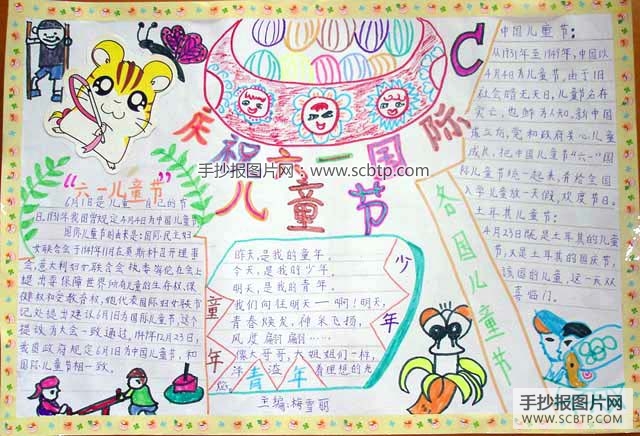 庆祝六一国际
儿童节
手抄报图片网：www.scbtp.com
“六一儿童节”
6月1日是儿童自己的节
日,1931年我国曾规定4月4日为中国儿童节
国际儿童节的由来是:国际民主妇
女联合会于1949年11月在莫斯科召开理事
会,意大利妇女联合会执委
提出要保障世界所有儿童的生存权,保
健权和受教育权,她代表国际妇女联书
记处提出建议6月1日为国际儿童节,这个
提议为大会一致通过,1949年12月23日,
我国政府规定6月1日为中国儿童节,和
国际儿童节相一致。
昨天,是我的童年。
今天,是我的少年。
明天,是我的青年。
我们向往明天——啊!明天,
青春焕发,神采飞扬,
风度翩翩……
像大哥哥,大姐姐们一样,
看理想的光
童年
少年
青年
主编:梅雪丽
各国儿童节
中国儿童节:
从1931年至1949年,中国以
4月4日为儿童节,由于旧
社会暗无天日,儿童节名存
实亡,也鲜为人知。新中国
成立后,党和政府关心儿童
成长,把中国儿童节“六一”国
际儿童节统一起来,并给全国
入学儿童放一天假,欢度节日。
土耳其儿童节:
4月23日既是土耳其的儿童
节,又是土耳其的国庆节,
该国的儿童,这一天双
喜临门。
手抄报图片网
SCBTP.COM